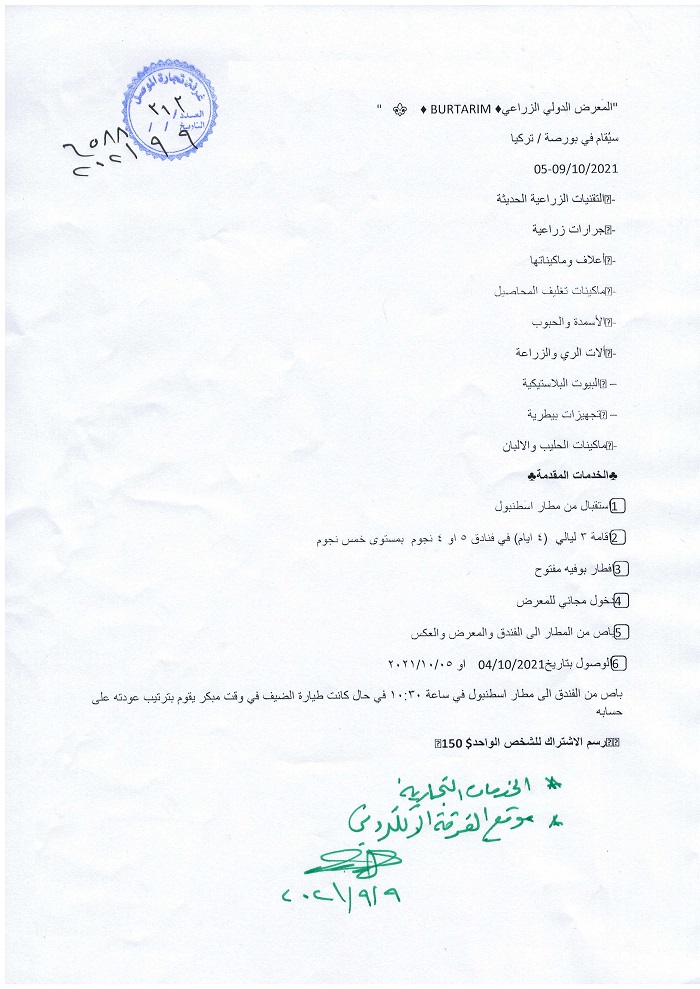 غرفة تجارة الموصل
العدد / ٣١٢
التاريخ / /
٢٠٢١ ٩ ٩
"المعرض الدولي الزراعي♦ BURTARIM ♦ ⚜ "
سيُقام في بورصة / تركيا
05-09/10/2021
-التقنيات الزراعية الحديثة
-جرارات زراعية
-أعلاف وماكيناتها
-ماكينات تغليف المحاصيل
-الأسمدة والحبوب
-آلات الري والزراعة
– البيوت البلاستيكية
– تجهيزات بيطرية
-ماكينات الحليب والالبان
♣الخدمات المقدمة♣
1ستقبال من مطار اسطنبول
2قامة ٣ ليالي (٤ ايام) في فنادق ٥ او ٤ نجوم بمستوى خمس نجوم
3فطار بوفيه مفتوح
4دخول مجاني للمعرض
5باص من المطار الى الفندق والمعرض والعكس
6لوصول بتاريخ04/10/2021 او ٢٠٢١/١٠/٠٥
باص من الفندق الى مطار اسطنبول في ساعة ١٠:٣٠ في حال كانت طيارة الضيف في وقت مبكر يقوم بترتيب عودته على
حسابه
رسم الاشتراك للشخص الواحد$ 150
* الخدمات التجارية
* موقع الغرفة الألكتروني
٢٠٢١/٩/٩